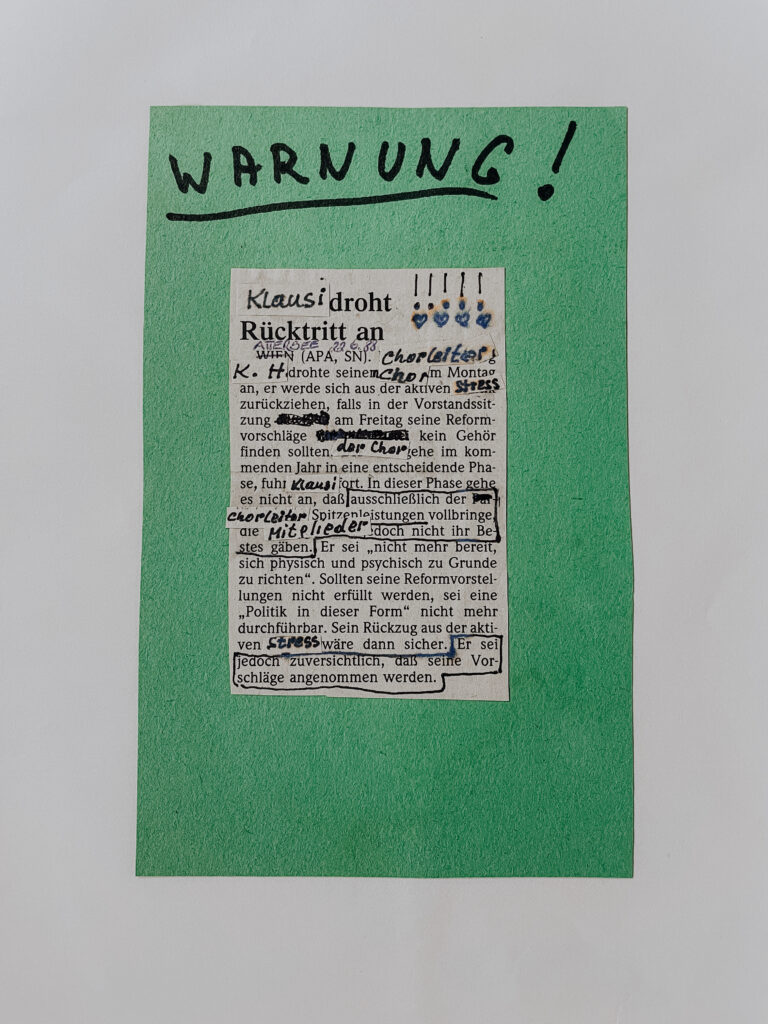 WARNUNG!
Klausi droht !!!!!
Rücktritt an
ATTERSEE
WIEN (APA, SN). Chorleiter
K. H. drohte seinem Chor m Montag
an, er werde sich aus der aktiven Stress
zurückziehen, falls in der Vorstandssit-
zung am Freitag seine Reform-
vorschläge kein Gehör
finden sollten. der Chor gehe im kom-
menden Jahr in eine entscheidende Pha-
se, fuhr Klausi fort. In dieser Phase gehe
es nicht an, daß ausschließlich der
Chorleiter Spitzenleistungen vollbringe,
die Mitglieder jedoch nicht ihr Be-
stes gäben. Er sei „nicht mehr bereit,
sich physisch und psychisch zu Grunde
zu richten“. Sollten seine Reformvorstel-
lungen nicht erfüllt werden, sei eine
„Politik in dieser Form“ nicht mehr
durchführbar. Sein Rückzug aus der akti-
ven Stress wäre dann sicher. Er sei
jedoch zuversichtlich, daß seine Vor-
schläge angenommen werden.